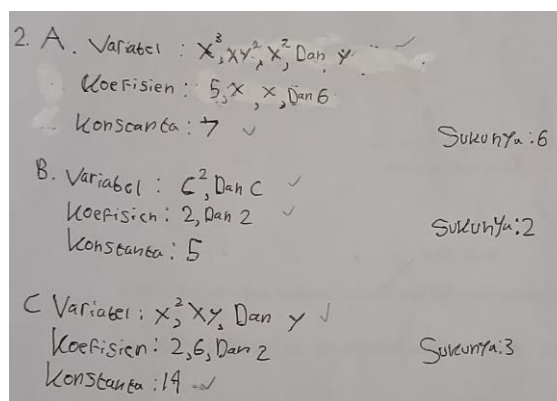 2. A. Variabel : x³, xy², x², Dan y
Koefisien : 5, x, x, Dan 6
Konstanta : 7
Sukunya : 6
B. Variabel : C², Dan C
Koefisien : 2, Dan 2
Konstanta : 5
Sukunya : 2
C Variabel : x², xy, Dan y
Koefisien : 2, 6, Dan 2
Konstanta : 14
Sukunya : 3